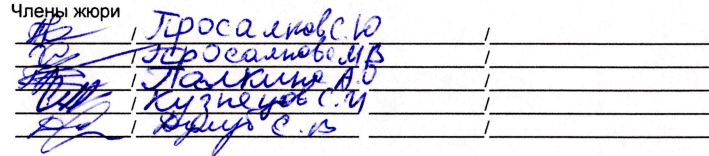 Члены жюри
/ Просалков С.Ю /
/ Просалкова М.В /
/ Палкина А.О /
/ Кузнецов С.И /
/ С.В /